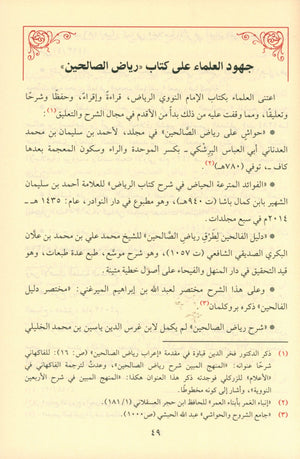 جهود العلماء على كتاب «رياض الصالحين»
اعتنى العلماء بكتاب الإمام النووي الرياض، قراءةً وإقراءً، وحفظًا وشرحًا
وتعليقًا، ومما وقفت عليه من ذلك بدأً من الأقدم في مجال الشرح والتعليق(١):
* «حواشٍ على رياض الصَّالحين» في مجلد، لأحمد بن سليمان بن محمد
العدناني أبي العباس البِرِشْكي - بكسر الموحدة والراء وسكون المعجمة بعدها
كاف -، توفي (٧٨٠هـ)(٢).
* «الفوائد المترعة الحياض في شرح كتاب الرياض» للعلامة أحمد بن سليمان
الشهير بابن كمال باشا (ت ٩٤٠هـ)، وهو مطبوع في دار النوادر، عام: ١٤٣٥هـ -
٢٠١٤م في سبع مجلدات.
* «دليل الفالحين لطُرُق رياض الصَّالحين» للشيخ محمد علي بن محمد بن علَّان
البكري الصديقي الشافعي (ت ١٠٥٧)، وهو شرح موسّع، طبع عدة طبعات، وهو
قيد التحقيق في دار المنهل والفيحاء على أصول خطية متينة.
* وعلى هذا الشرح مختصر لعبد الله بن إبراهيم الميرغني: «مختصر دليل
الفالحين» ذكره بروكلمان(٣).
* «شرح رياض الصالحين» لم يكمل لابن غرس الدين ياسين بن محمد الخليلي
(١) ذكر الدكتور فخر الدين قباوة في مقدمة «إعراب رياض الصالحين» (ص: ١٦): للفاكهاني
شرحًا عنوانه: «المنهج المبين شرح رياض الصالحين»، وعدتُ لترجمة الفاكهاني في
«الأعلام» للزركلي فوجدته ذكر هذا العنوان هكذا: «المنهج المبين في شرح الأربعين
النووية»، وأشار إلى كونه مخطوطًا.
(٢) «إنباء الغمر بأبناء العمر» للحافظ ابن حجر العسقلاني (١/ ١٨١).
(٣) «جامع الشروح والحواشي» عبد الله الحبشي (ص ١٠٠٠).
٤٩